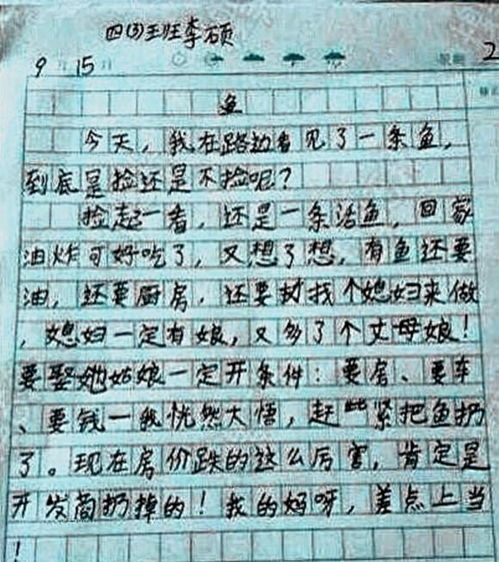 四(3)班李硕
9月15日
鱼
今天，我在路边看见了一条鱼，
到底是捡还是不捡呢？
捡起一看，还是一条活鱼，回家
油炸可好吃了，又想了想，有鱼还要
油，还要厨房，还要找个媳妇来做
，媳妇一定有娘，又多了个丈母娘！
要娶她姑娘一定开条件：要房、要车
、要钱一我恍然大悟，赶紧把鱼扔
了。现在房价跌的这么厉害，肯定是
开发商扔掉的！我的妈呀，差点上当
！